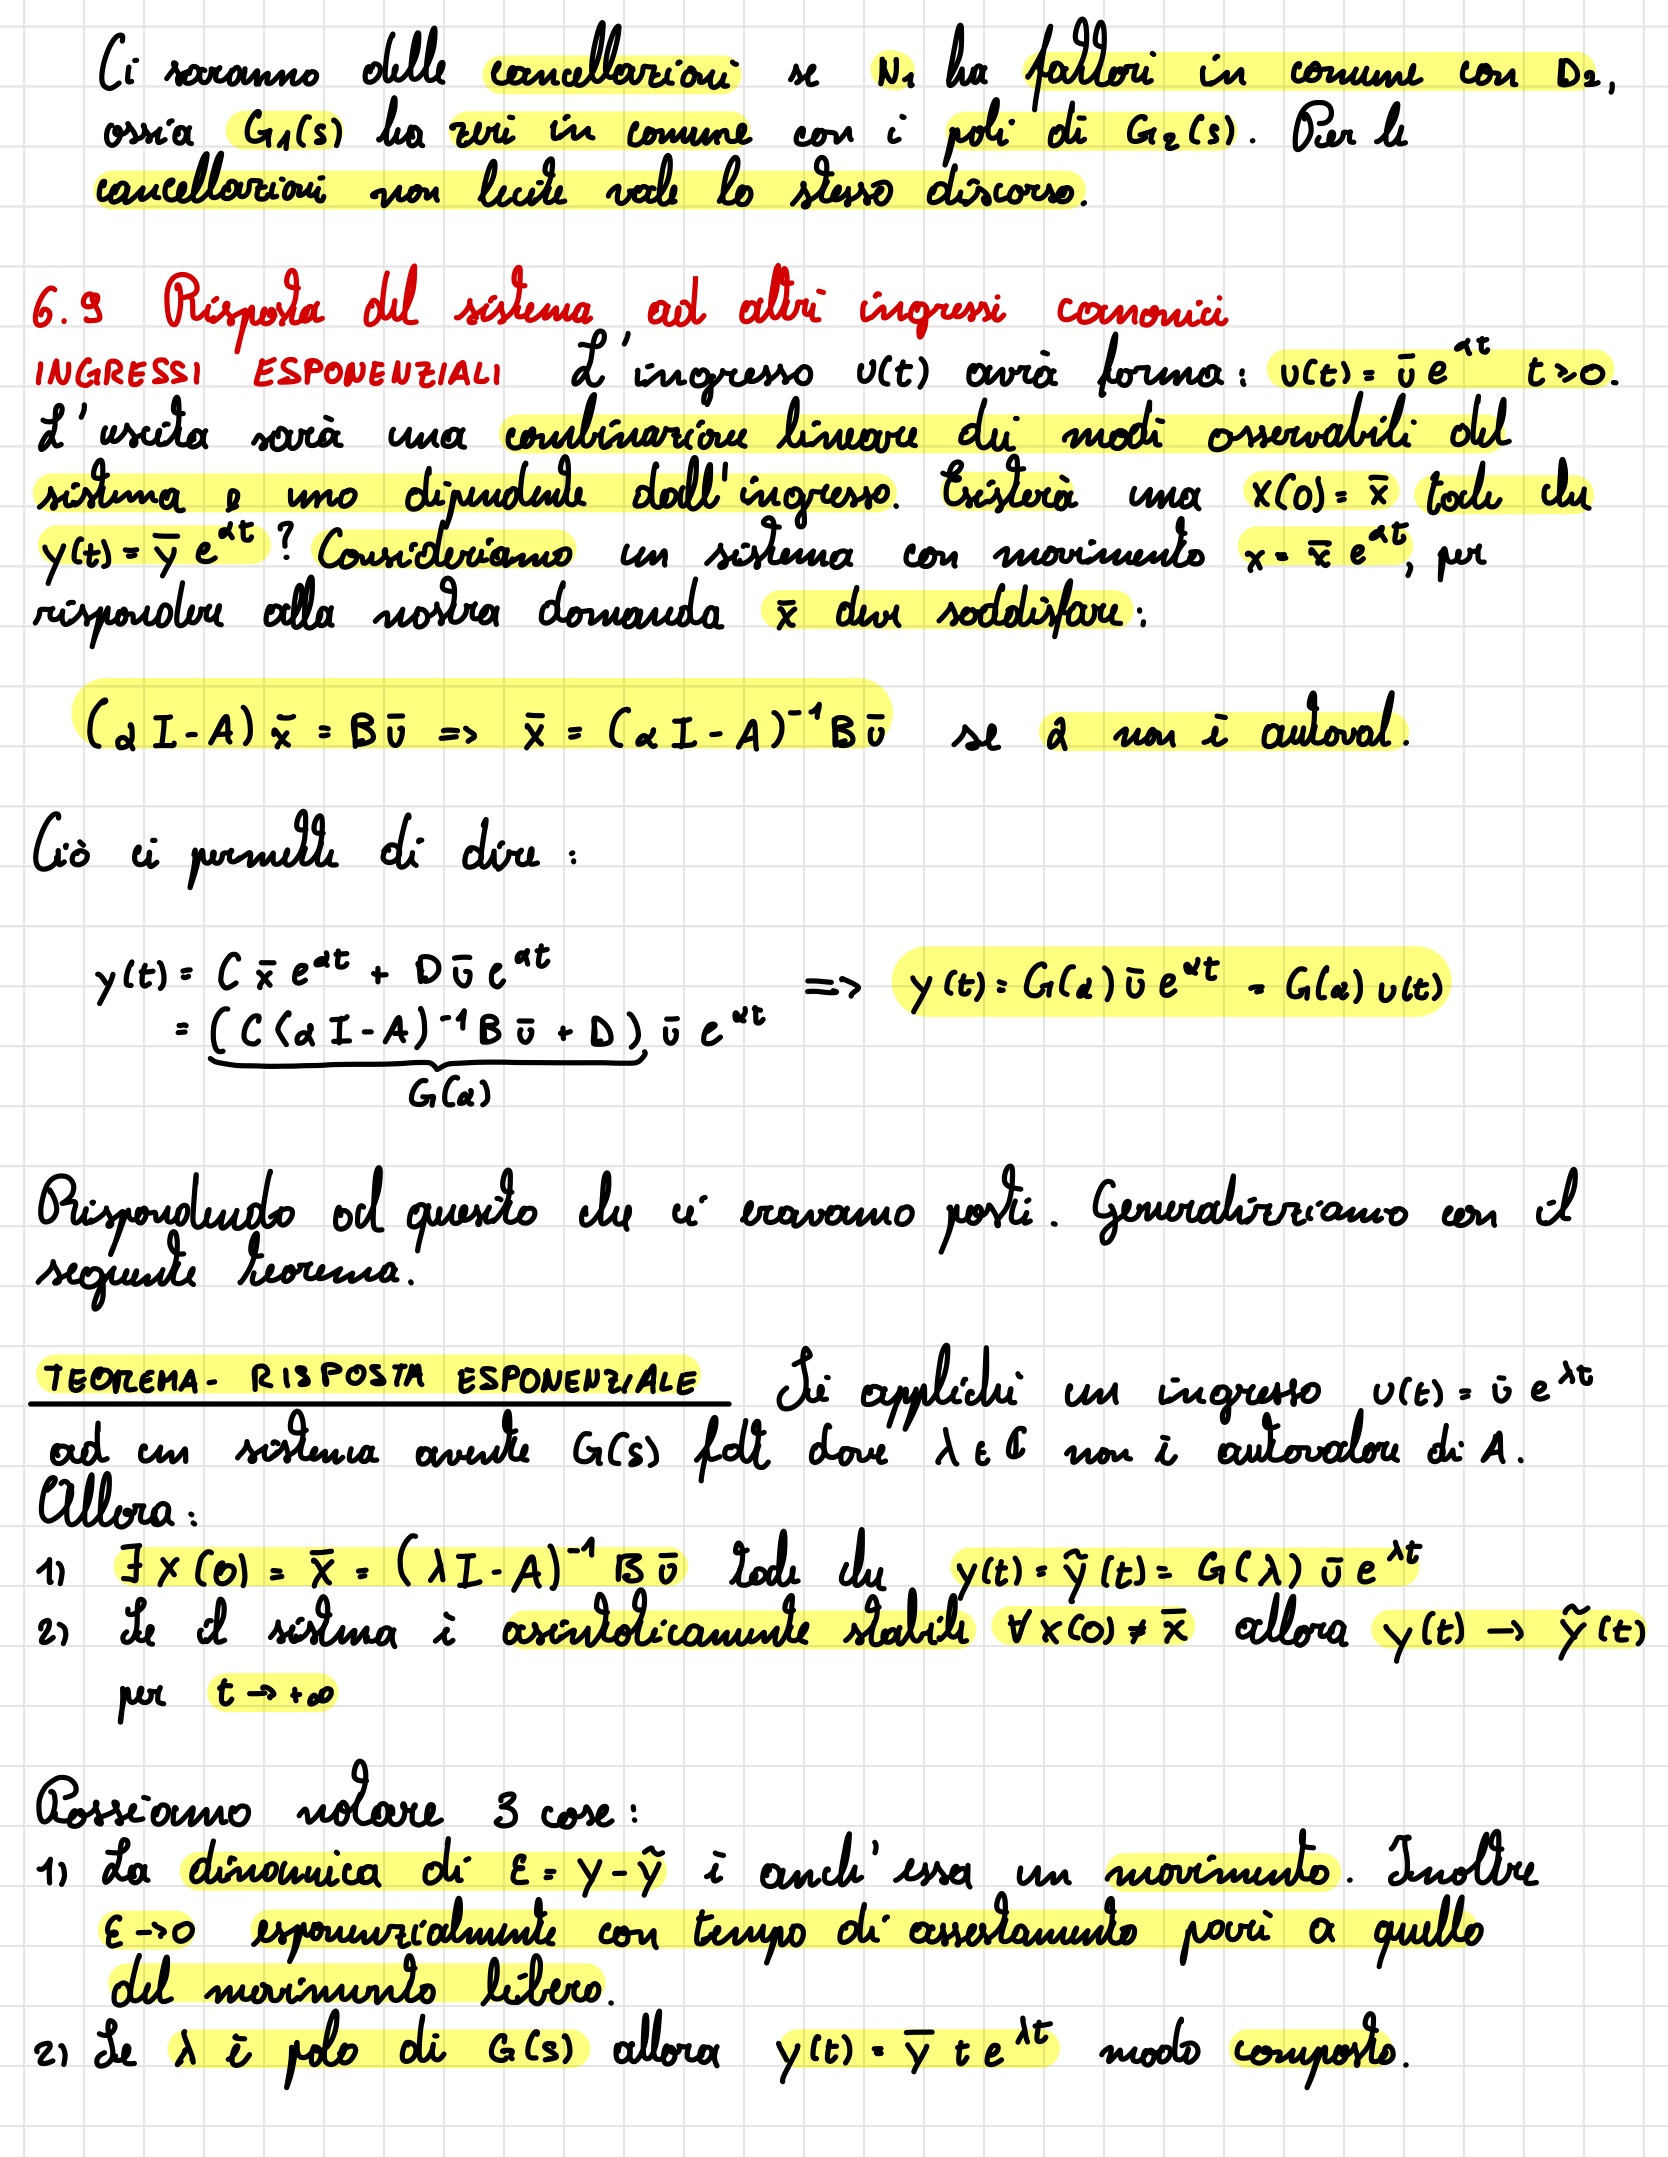 Ci saranno delle cancellazioni se N₁ ha fattori in comune con D₂,
ossia G₁(s) ha zeri in comune con i poli di G₂(s). Per le
cancellazioni non lecite vale lo stesso discorso.
6.9 Risposta del sistema ad altri ingressi canonici
INGRESSI ESPONENZIALI L'ingresso u(t) avrà forma: u(t) = ū e^{αt} t≥0.
L'uscita sarà una combinazione lineare dei modi osservabili del
sistema e uno dipendente dall'ingresso. Esisterà una x(0) = x̄ tale che
y(t) = ȳ e^{αt} ? Consideriamo un sistema con movimento x = x̄ e^{αt}, per
rispondere alla nostra domanda x̄ deve soddisfare:
(αI-A) x̄ = Bū => x̄ = (αI-A)⁻¹Bū se α non è autoval.
Ciò ci permette di dire:
y(t) = C x̄ e^{αt} + Dū e^{αt} => y(t) = G(α) ū e^{αt} = G(α) u(t)
= (C(αI-A)⁻¹Bū + D) ū e^{αt}
G(α)
Rispondendo al quesito che ci eravamo posti. Generalizziamo con il
seguente teorema.
TEOREMA - RISPOSTA ESPONENZIALE Si applichi un ingresso u(t) = ū e^{λt}
ad un sistema avente G(s) fdt dove λ ∈ ℂ non è autovalore di A.
Allora:
1) ∃ x(0) = x̄ = (λI-A)⁻¹ Bū tale che y(t) = ỹ(t) = G(λ) ū e^{λt}
2) Se il sistema è asintoticamente stabile ∀x(0) ≠ x̄ allora y(t) → ỹ(t)
per t → +∞
Possiamo notare 3 cose:
1) La dinamica di ε = y - ỹ è anch'essa un movimento. Inoltre
ε → 0 esponenzialmente con tempo di assestamento pari a quello
del movimento libero.
2) Se λ è polo di G(s) allora y(t) = ȳ t e^{λt} modo composto.